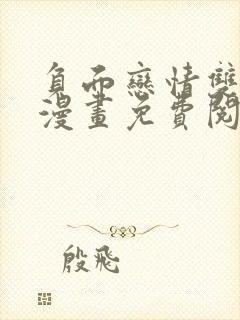 負而戀情雙
漫畫免費閱
殷飛